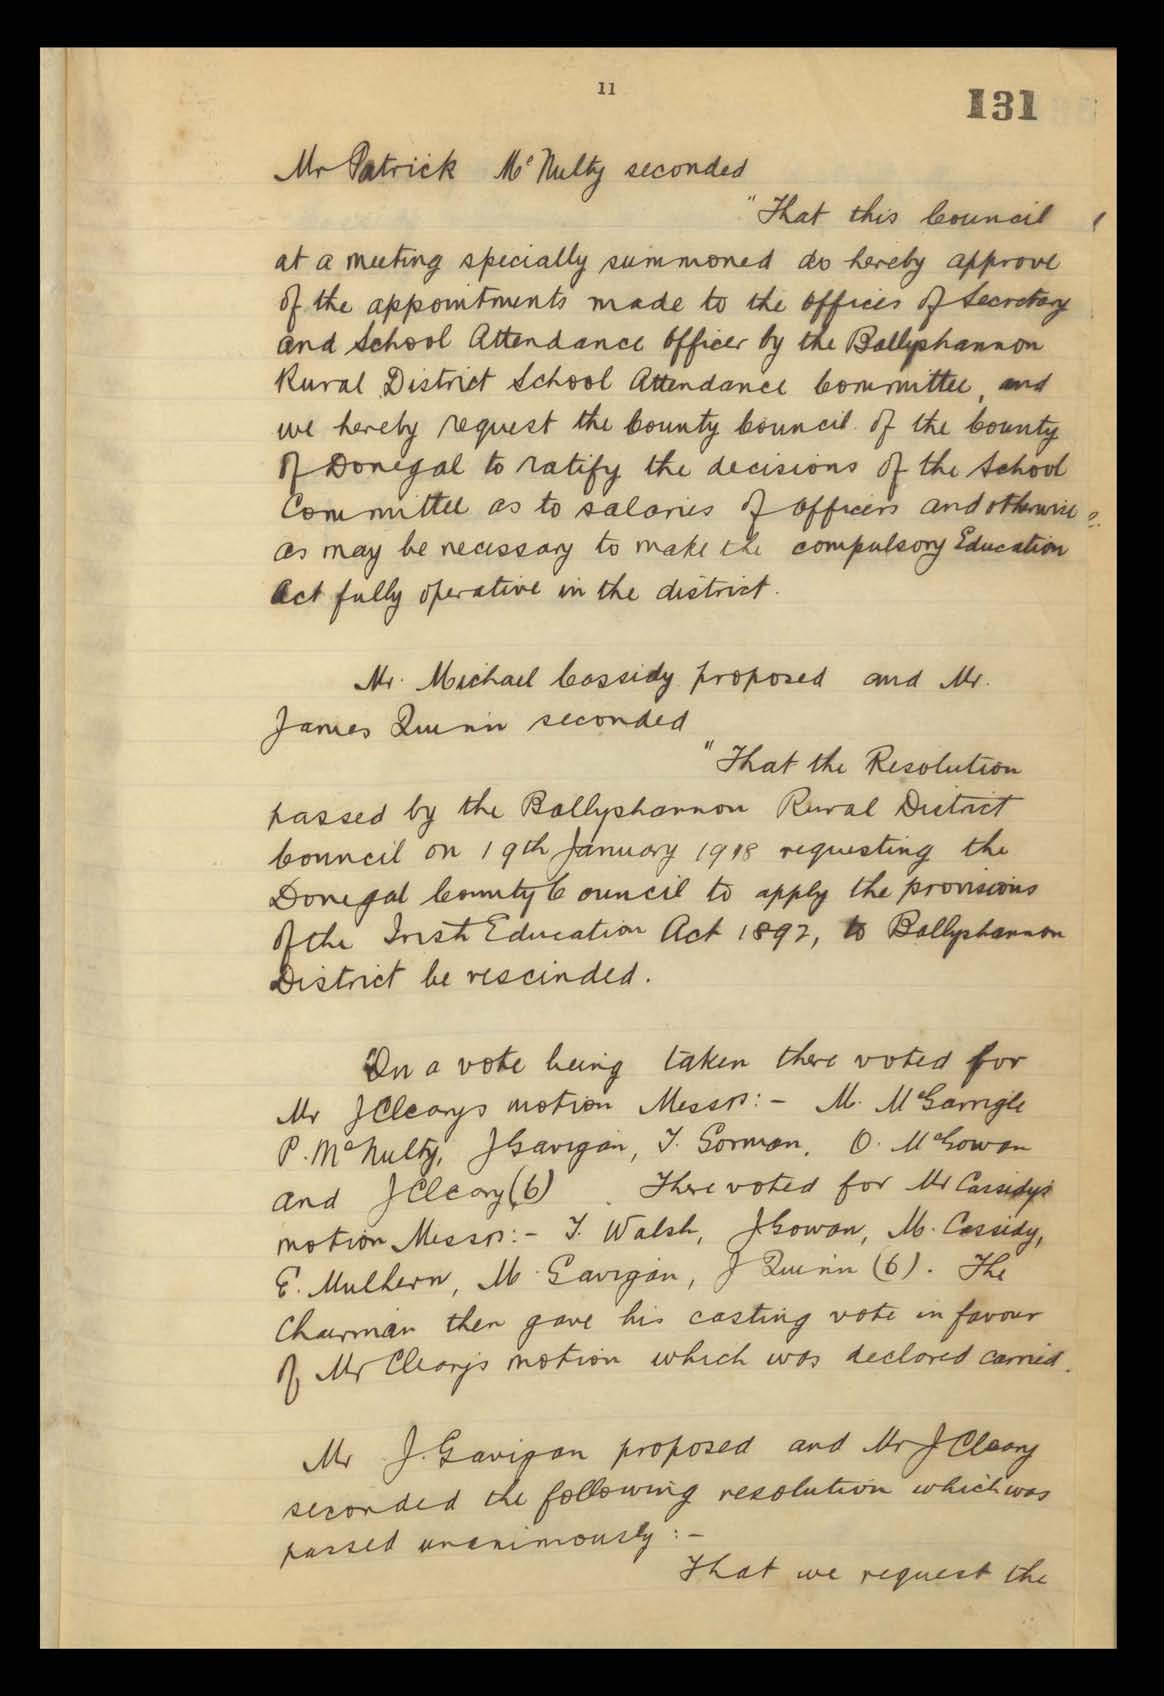 11
131
Mr Patrick McNulty seconded
"That this Council
at a meeting specially summoned do hereby approve
of the appointments made to the offices of Secretary
and School Attendance Officer by the Ballyshannon
Rural District School Attendance Committee, and
we hereby request the County Council of the County
of Donegal to ratify the decisions of the School
Committee as to salaries of officers and otherwise
as may be necessary to make the compulsory Education
Act fully operative in the district.
Mr. Michael Cassidy proposed and Mr.
James Quinn seconded
"That the Resolution
passed by the Ballyshannon Rural District
Council on 19th January 1918 requesting the
Donegal County Council to apply the provisions
of the Irish Education Act 1892, to Ballyshannon
District be rescinded.
On a vote being taken there voted for
Mr J Cleary's motion Messrs:- M. McGarrigle
P. McNulty, J Gavigan, T. Gorman, O. McGowan
and J Cleary (6). There voted for Mr Cassidy's
motion Messrs:- T. Walsh, J Gowan, M. Cassidy,
E. Mulhern, M. Gavigan, J Quinn (6). The
Chairman then gave his casting vote in favour
of Mr Cleary's motion which was declared carried.
Mr J. Gavigan proposed and Mr J Cleary
seconded the following resolution which was
passed unanimously:-
That we request the